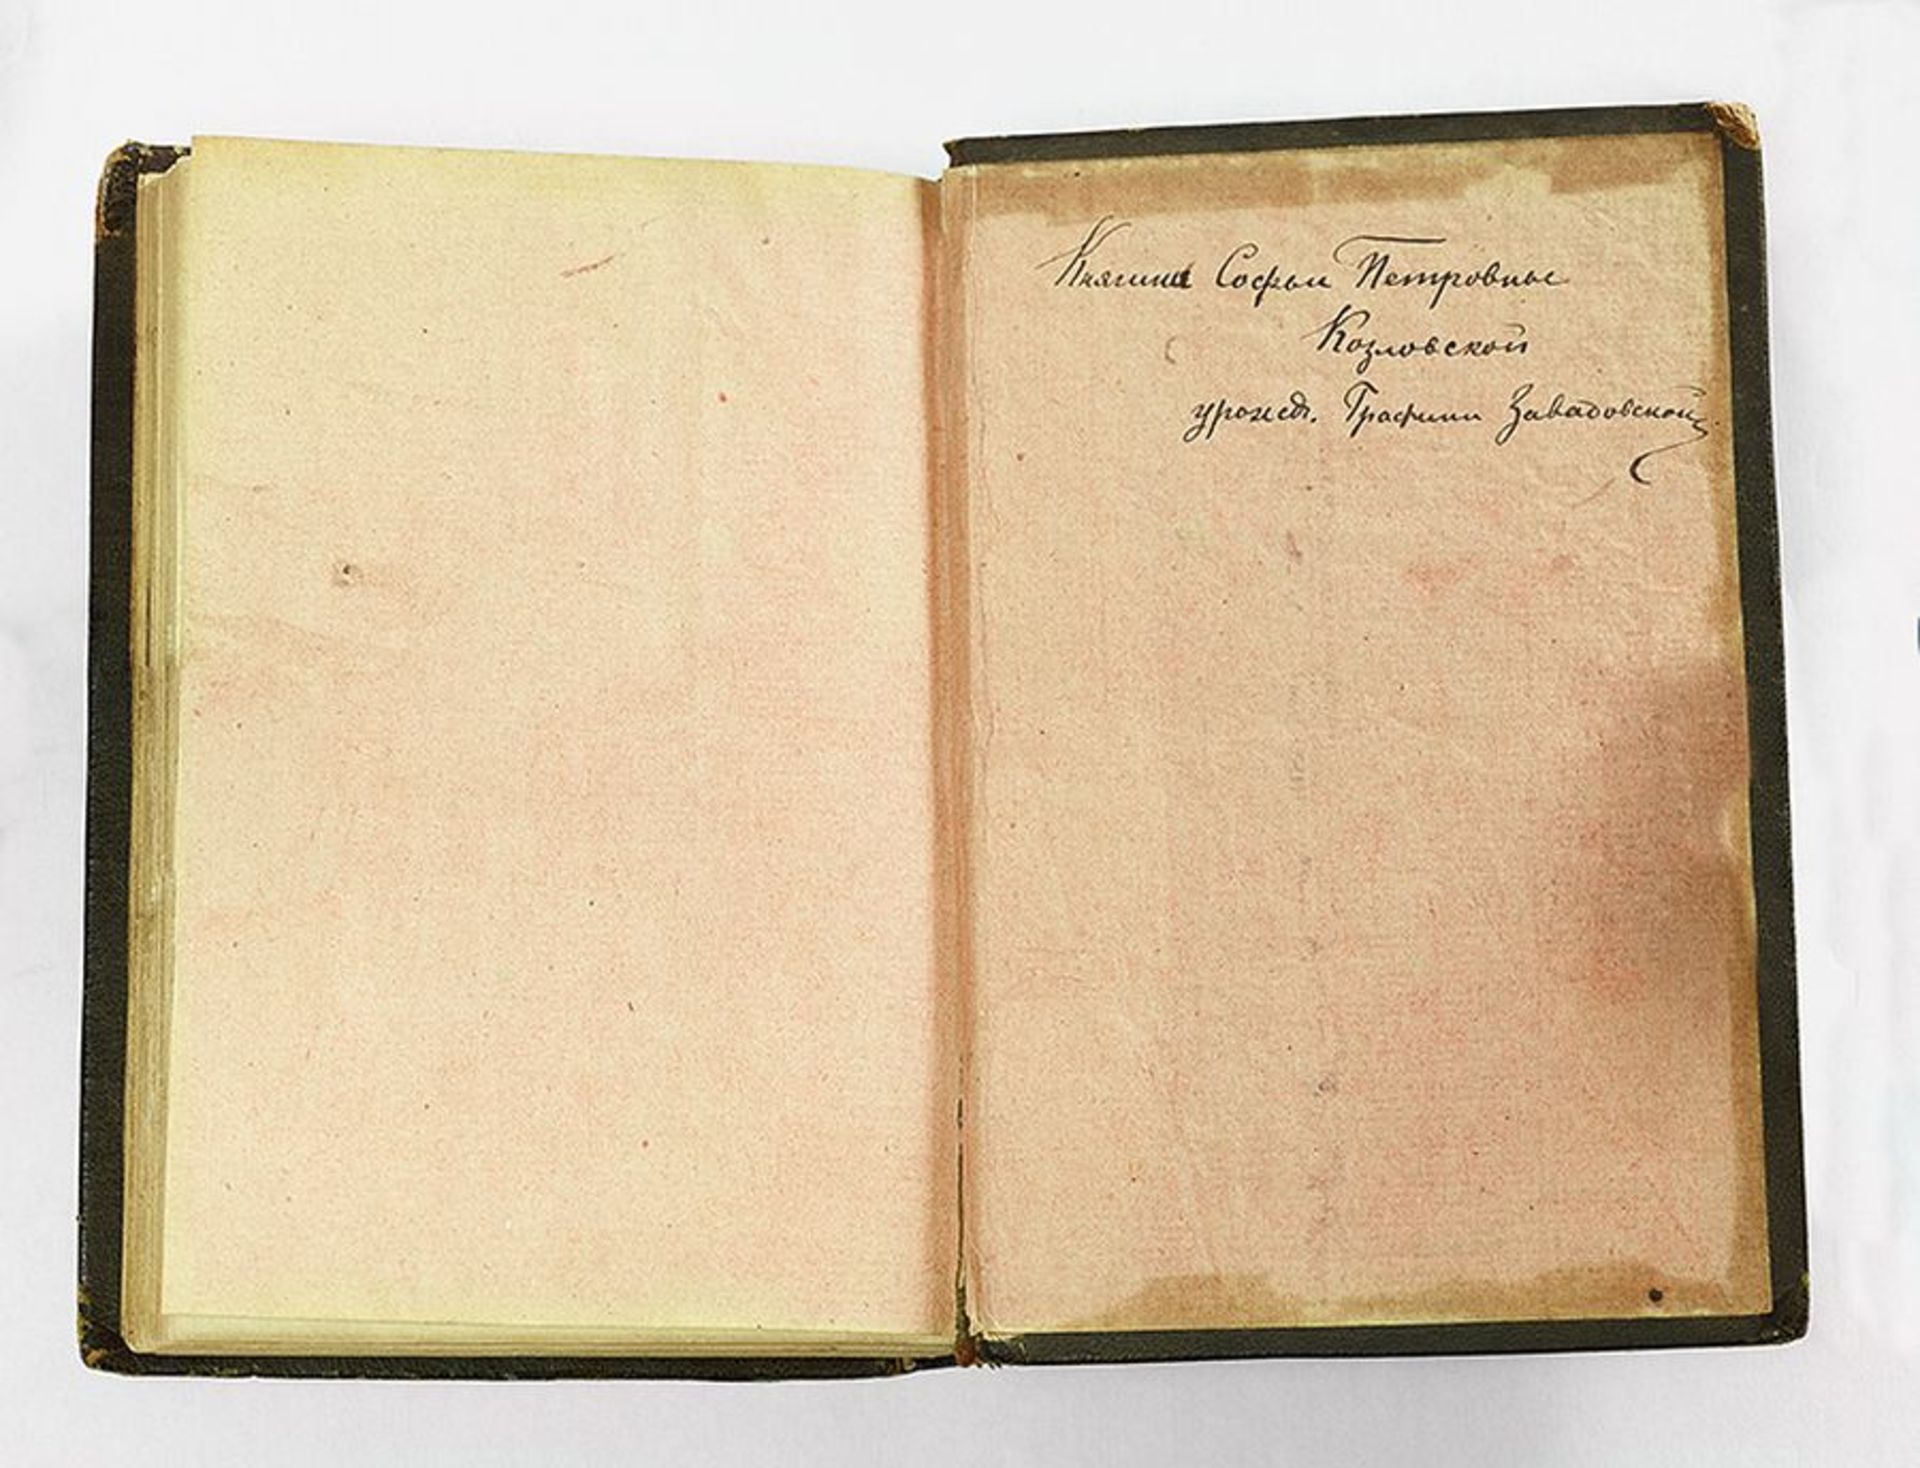 Княгини Софьи Петровны
Козловской
урожд. Графини Завадовской